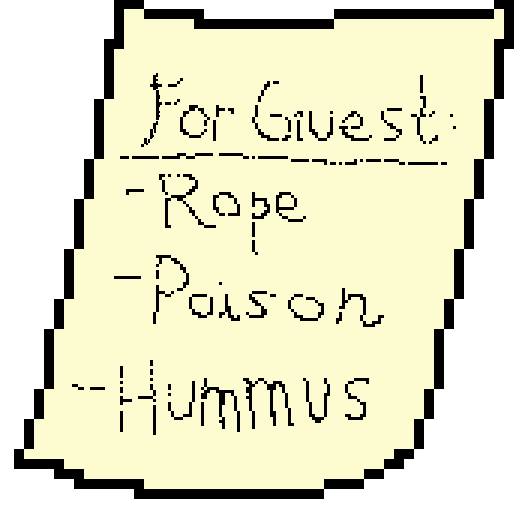 For Guest:
-Rope
-Poison
-Hummus